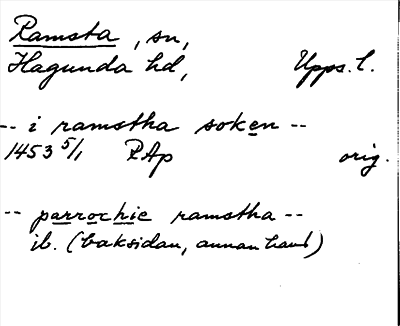 Ramsta, sn,
Hagunda hd, Upps. l.
-- i ramstha soken --
1453 5/1 RAp orig.
-- parrochie ramstha --
ib. (baksidan, annan hand)